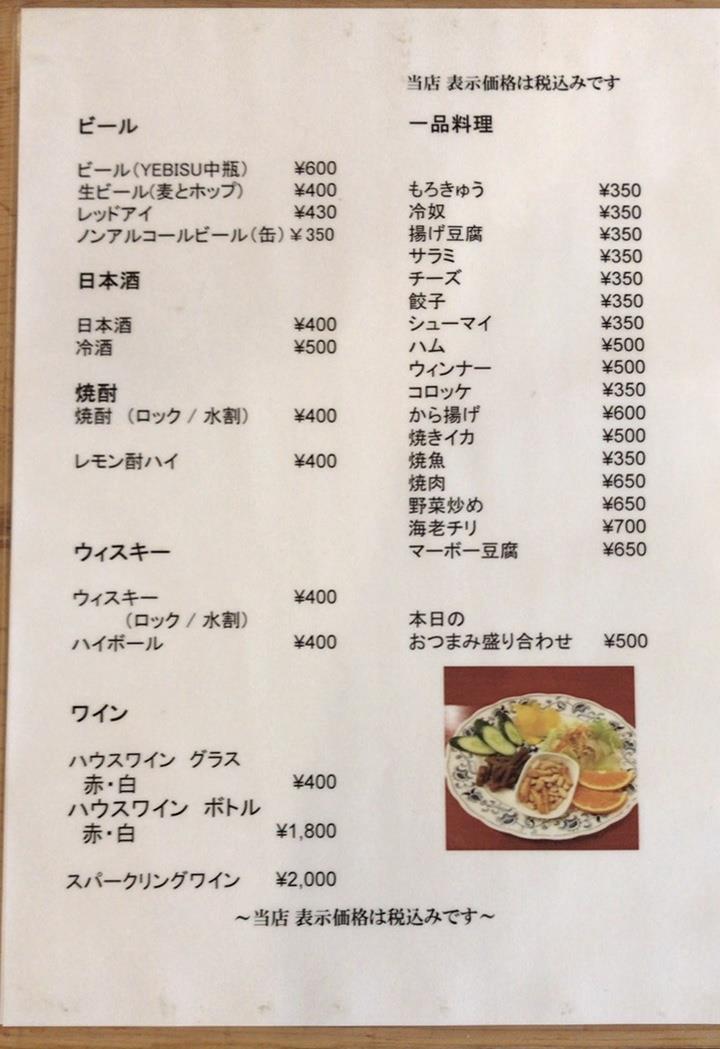 当店 表示価格は税込みです
ビール
ビール（YEBISU中瓶） ¥600
生ビール（麦とホップ） ¥400
レッドアイ ¥430
ノンアルコールビール（缶） ¥350
日本酒
日本酒 ¥400
冷酒 ¥500
焼酎
焼酎 （ロック / 水割） ¥400
レモン酎ハイ ¥400
ウィスキー
ウィスキー ¥400
（ロック / 水割）
ハイボール ¥400
ワイン
ハウスワイン グラス
赤・白 ¥400
ハウスワイン ボトル
赤・白 ¥1,800
スパークリングワイン ¥2,000
一品料理
もろきゅう ¥350
冷奴 ¥350
揚げ豆腐 ¥350
サラミ ¥350
チーズ ¥350
餃子 ¥350
シューマイ ¥350
ハム ¥500
ウィンナー ¥500
コロッケ ¥350
から揚げ ¥600
焼きイカ ¥500
焼魚 ¥350
焼肉 ¥650
野菜炒め ¥650
海老チリ ¥700
マーボー豆腐 ¥650
本日の
おつまみ盛り合わせ ¥500
～当店 表示価格は税込みです～